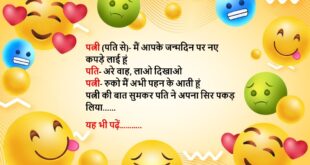 पत्नी (पति से)- मैं आपके जन्मदिन पर नए
कपड़े लाई हूं
पति- अरे वाह, लाओ दिखाओ
पत्नी- रुको मैं अभी पहन के आती हूं
पत्नी की बात सुमकर पति ने अपना सिर पकड़
लिया......
यह भी पढ़ें...........